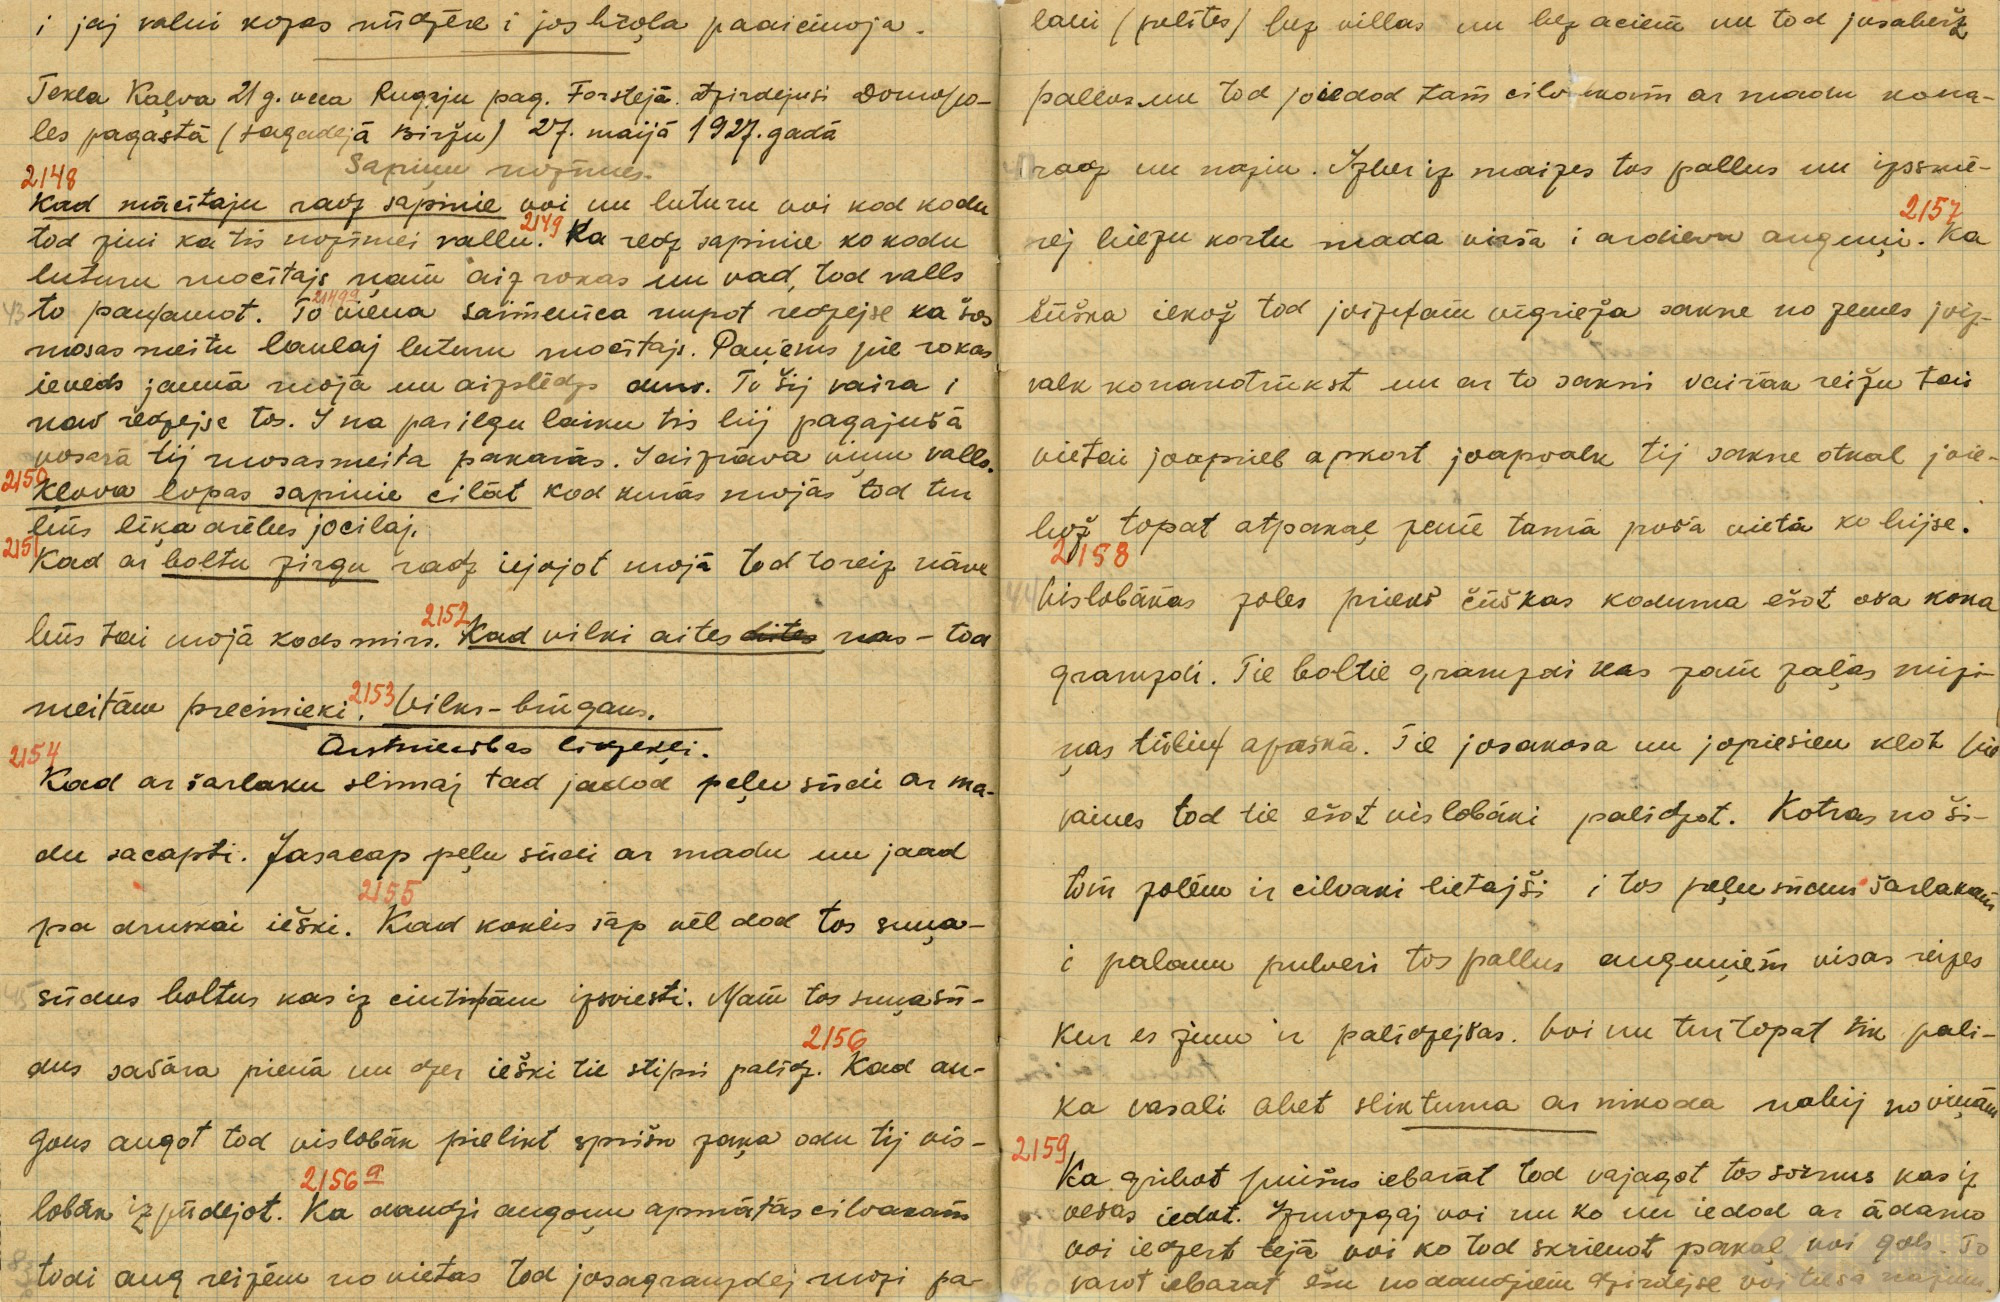 i jaj valni kojas nidzēre i jos brōļa paaicinoja.
Tekla Kaļva 21 g. veca Rugāju pag. Forstejā. Dzirdejusi Domopo-
les pagastā (sagadejā Biržu) 27. maijā 1927. gadā
Sapņu nozīmes.
2148
Kad mācitaju radz sapinie voi nu luturu voi kod kodu
tod zini ka tis nozīmej vallu. 2149 Ka redz sapinie ko kodu
luturu mocitajs ņam aiz rokas nu vad, tod valls
43 to paņamot. 2149a To viena saimenica nupot redzejse ka šos
mosas meitu laulaj luturu mocitajs. Paņems pie rokas
ieveds jaunā mojā un aizslēdzs durs. To šij vaira i
nav redzejse tos. I na par ilgu laiku tis bij pagajušā
vosarā tij mosasmeita pakarās. I aizrāva viņu valls.
2150
Kļova lopas sapinie cilāt kod kurās mojās tod tur
būs līķa ārībus jocilaj.
2151
Kad ar boltu zirgu radz iejojot mojā tod toreiz nāve
būs tai mojā kods mirs. 2152 Kad vilki aites nas - tod
meitām precinieki. 2153 Vilks - brūgans.
Ārstniecības lidzekļi.
2154
Kad ar šarlaku slimaj tad jadod peļu sūdi ar ma-
du sacapti. Jasacap peļu sūdi ar madu un jaad
pa druskai ieški. 2155 Kad kokles sāp vēl dod tos suņa-
45 sūdus boltus kas iz cintiņām izsviesti. Mam tos suņa sū-
dus sašāra pienā un dzer ieški tie stipri palidz. 2156 Kad au-
gons augot tod vislobāk pielikt sprišu zaķa odu tij vis-
lobāk iz pūdejot. 2156a Ka daudzi augoņu apmātās cilvakam
todi aug reizēm no vietas tod josagramzdej mozi pa-
lani (pelites) bez villas un bez aciem un tod josaberž
pallus un tod joiedod tam cilvakam ar madu kona-
radz un nazin. Izber iz maizes tos pallus un izsmē-
rej biezu kortu mada virsā i ardieva auguņi. 2157 Ka
čūška iekož tod joizņam vigrieža sakne no zemes joiz-
valk konanotrūkst un ar to sakni vairāk reižu tai
vietai joapriež apkort joapvalk tij sakne otkal joie-
bož topat atpakaļ zemē tamā pošā vietā ko bijse.
2158
44 Vislobākas zoles prieks čūškas koduma ešot osa koka
gramzdi. Tie boltie gramzdi kas zam zaļas mizi-
ņas tūliņ apaskā. Tie josakosa un jopiesien klot pie
vaines tod tie ešot vislobāki palidzot. Kotras no ši-
tom zolēm ir cilvaki lietajši i tos peļu sūdus šarlakam
i palanu pulveri tos pallus auguņiem visas reizes
kur es zinu ir palidzejšas. Voi nu tur topat tik pali-
ka vasali abet sliktuma ar nikoda nabij no viņām
2159
Ka gribot puišus iebarāt tod vajagot tos sornus kas iz
vešas iedot. Izmozgaj voi nu ko un iedod ar ādamo
voi iedzert tejā voi ko tod skrienot pakaļ voi gols. To
varot iebarat ešu nodaudziem dzirdejse voi tiesa nazinu.